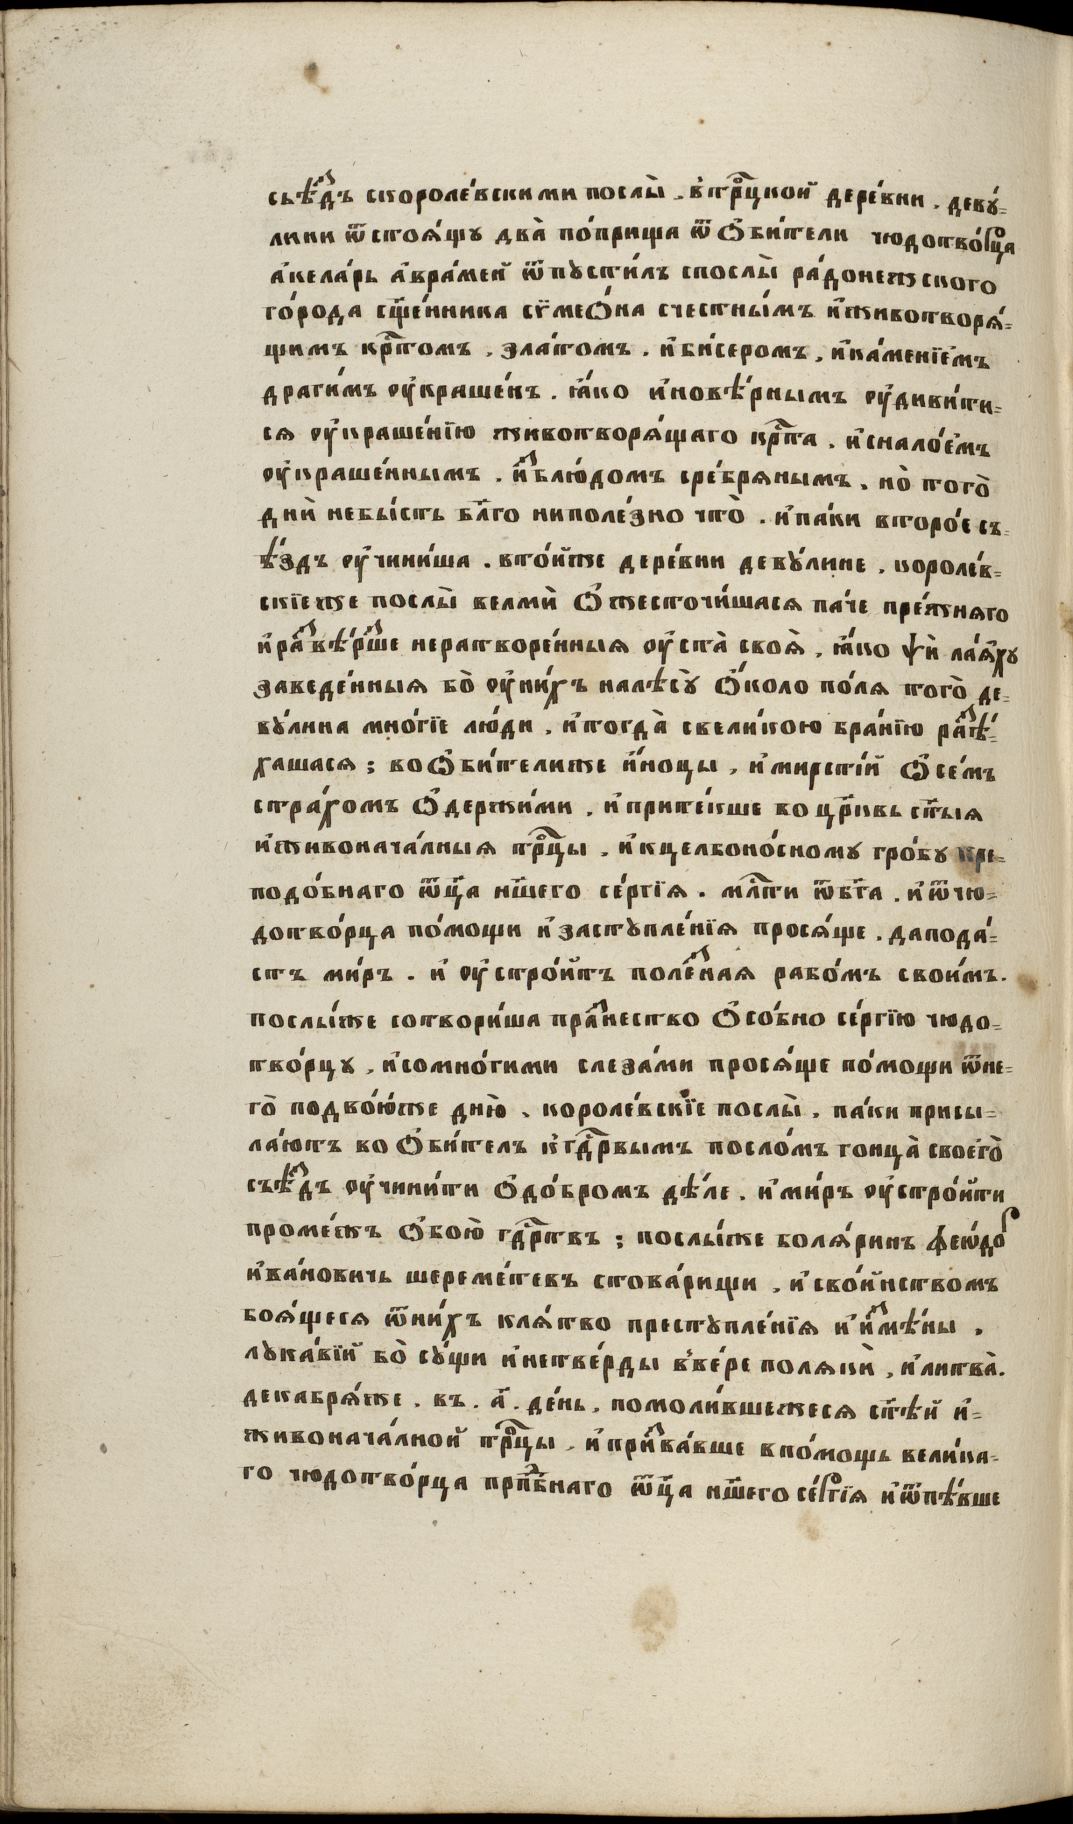 съѣ́здъ скороле́вскими послы̀ . в̾трⷪ҇цкой дере́вни . деву́-
лини ѿстоѧ́щу два̀ по́прища ѿ ѻ҆би́тели чюдотво́рца
а҆ке́ларь а҆вра́мей ѿпусти́лъ спослы̀ ра́донежского
го́рода сщ҃е́нника сѵмеѻ́на счестны́мъ и҆животворѧ́-
щимъ крⷭ҇то́мъ , зла́томъ . и҆би́серомъ , и҆ка́менїемъ
драги́мъ оу҆краше́нъ . ꙗ҆́ко и҆новѣ́рнымъ оу҆диви́ти-
сѧ оу҆краше́нїю животворѧ́щаго крⷭ҇та̀ . и҆снало́емъ
оу҆краше́ннымъ . и҆ з̾блю́домъ сре́брѧнымъ . но̀ того̀
днѝ небы́сть бл҃го ниполе́зно что̀ . и҆па́ки второ́е съ-
ѣ́здъ оу҆чини́ша . вто́йже дере́вни деву́лине . короле́в-
скїеже послы̀ велмѝ ѻ҆жесточи́шасѧ па́че пре́жнѧго
и҆ра̾звѣ́рзше нератворе́нныѧ оу҆ста̀ своѧ̀ . ꙗ҆́ко ѱѝ лаѧ́ху
заведе́нныѧ бо̀ оу҆ни́хъ налѣсу̀ ѻ҆́коло по́лѧ того̀ де-
ву́лина мно́гїе лю́ди . и҆тогда̀ свели́кою бра́нїю разъѣ́-
хашасѧ ; воѻ҆би́телиже и҆́ноцы , и҆мирстїй ѻ҆се́мъ
стра́хомъ ѻ҆держи́ми . и҆прите́кше во цр҃ковь ст҃ы́ѧ
и҆живонача́лныѧ трⷪ҇цы . и҆кцелбоно́сному гро́бу пре-
подо́бнаго ѿц҃а̀ нш҃его се́ргїѧ . млⷭ҇ти ѿбг҃а . и҆ѿчю-
дотво́рца по́мощи и҆заступле́нїѧ просѧ́ще . дапода́-
стъ ми́ръ . и҆ оу҆стро́итъ поле́знаѧ рабо́мъ свои́мъ .
послы́же сотвори́ша пра́зднество ѻ҆со́бно се́ргїю чюдо-
тво́рцу , и҆сомно́гими слеза́ми просѧ́ще по́мощи ѿне-
го̀ подвою́же дню̀ . короле́вскїе послы̀ . па́ки присы-
ла́ютъ во ѻ҆би́тель кгдⷭ҇рвымъ посло́мъ гонца̀ своего̀
съѣ́здъ оу҆чини́ти ѻ҆до́бромъ дѣ́ле . и҆ми́ръ оу҆стро́ити
проме́жъ ѻ҆бою̀ гдⷭ҇рствъ ; послы́же болѧ́ринъ ѳеѡ́доръ
и҆ва́новичь шереме́тевъ стова́рищи , и҆ сво́инствомъ
боѧ́щесѧ ѿни́хъ клѧ́тво преступле́нїѧ и҆ и҆змѣ́ны .
лука́вїй бо̀ су́щи и҆нетве́рды в̾ве́ре полѧкѝ , и҆литва̀ .
декабрѧ́же . въ . а҃ . де́нь , помоли́вшежесѧ ст҃ѣ́й и҆-
живонача́лной трⷪ҇цы . и҆призва́вше впо́мощь вели́ка-
го чюдотво́рца прпⷣбнаго ѿц҃а̀ нш҃его се́ргїѧ и҆ѿпѣ́вше